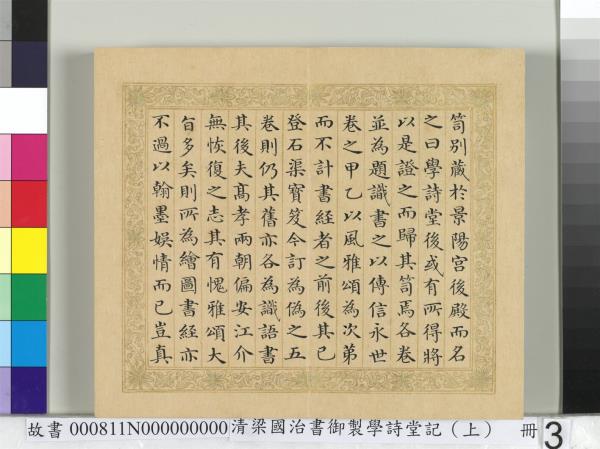 笥別藏於景陽宮後殿而名
之曰學詩堂後或有所得將
以是證之而歸其笥焉各卷
並為題識書之以傳信永世
卷之甲乙以風雅頌為次第
而不計書經者之前後其已
登石渠寶笈今訂為偽之五
卷則仍其舊亦各為識語書
其後夫髙孝兩朝偏安江介
無恢復之志其有愧雅頌大
旨多矣則所為繪圖書經亦
不過以翰墨娛情而已豈真
故書 000811N000000000 清梁國治書御製學詩堂記（上） 冊 3